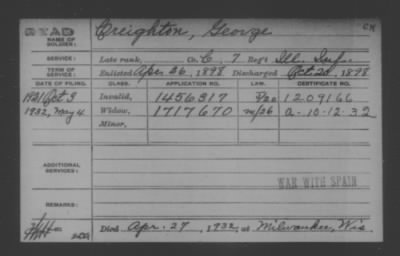 DEAD
NAME OF SOLDIER: Creighton, George C M
SERVICE: Late rank, Co. C, 7 Reg't Ill. Inf.
TERM OF SERVICE: Enlisted Apr. 26, 1898 Discharged Oct 20, 1898
DATE OF FILING. CLASS. APPLICATION NO. LAW. CERTIFICATE NO.
1921 Oct 3 Invalid, 1456317 1209166
1932, May 4 Widow, 1717670 M/26 A-10-12-32
Minor,
ADDITIONAL SERVICES:
WAR WITH SPAIN
REMARKS:
Died Apr. 27, 1932, at Milwaukee, Wis.